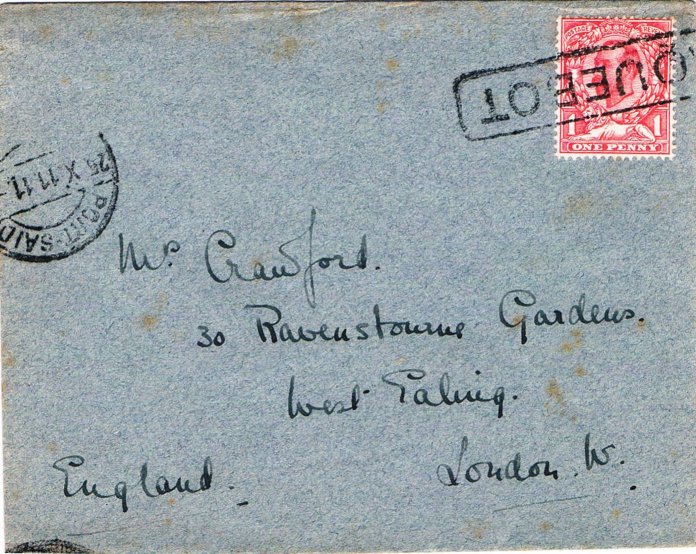 POSTAGE
PAQUEBOT
1 1
ONE PENNY
PORT-SAID
25 X 11.11
Mrs Crawford.
30 Ravensbourne Gardens.
West Ealing.
London. W.
England.